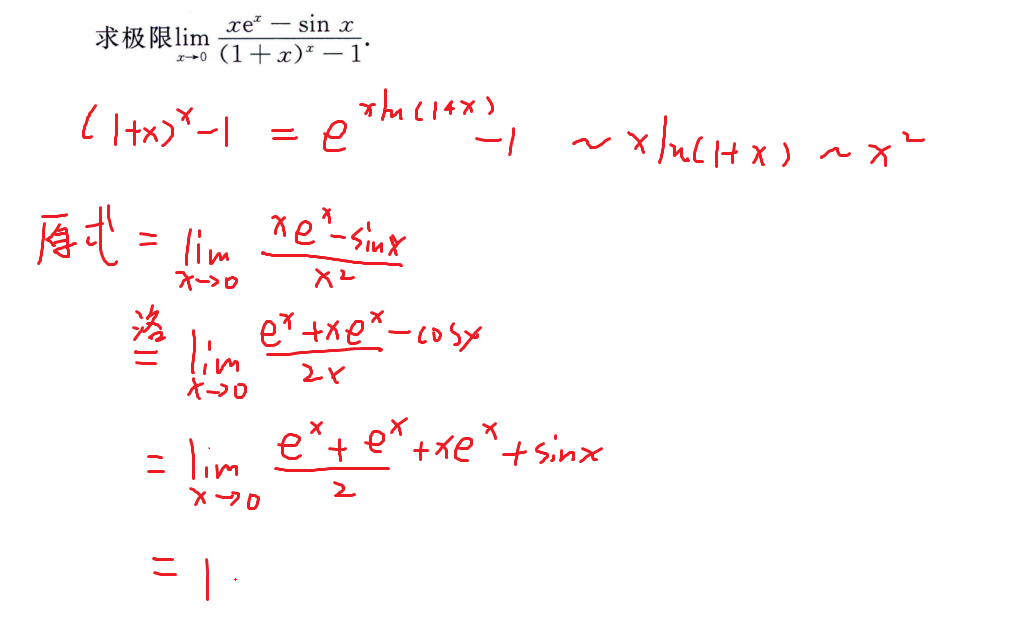 求极限lim x→0 (xeˣ − sin x)/((1+x)ˣ − 1).
(1+x)ˣ-1 = e^(xln(1+x)) -1 ~ xln(1+x) ~ x²
原式 = lim x→0 (xeˣ-sinx)/x²
洛= lim x→0 (eˣ+xeˣ-cosx)/2x
= lim x→0 (eˣ+eˣ+xeˣ+sinx)/2
= 1.